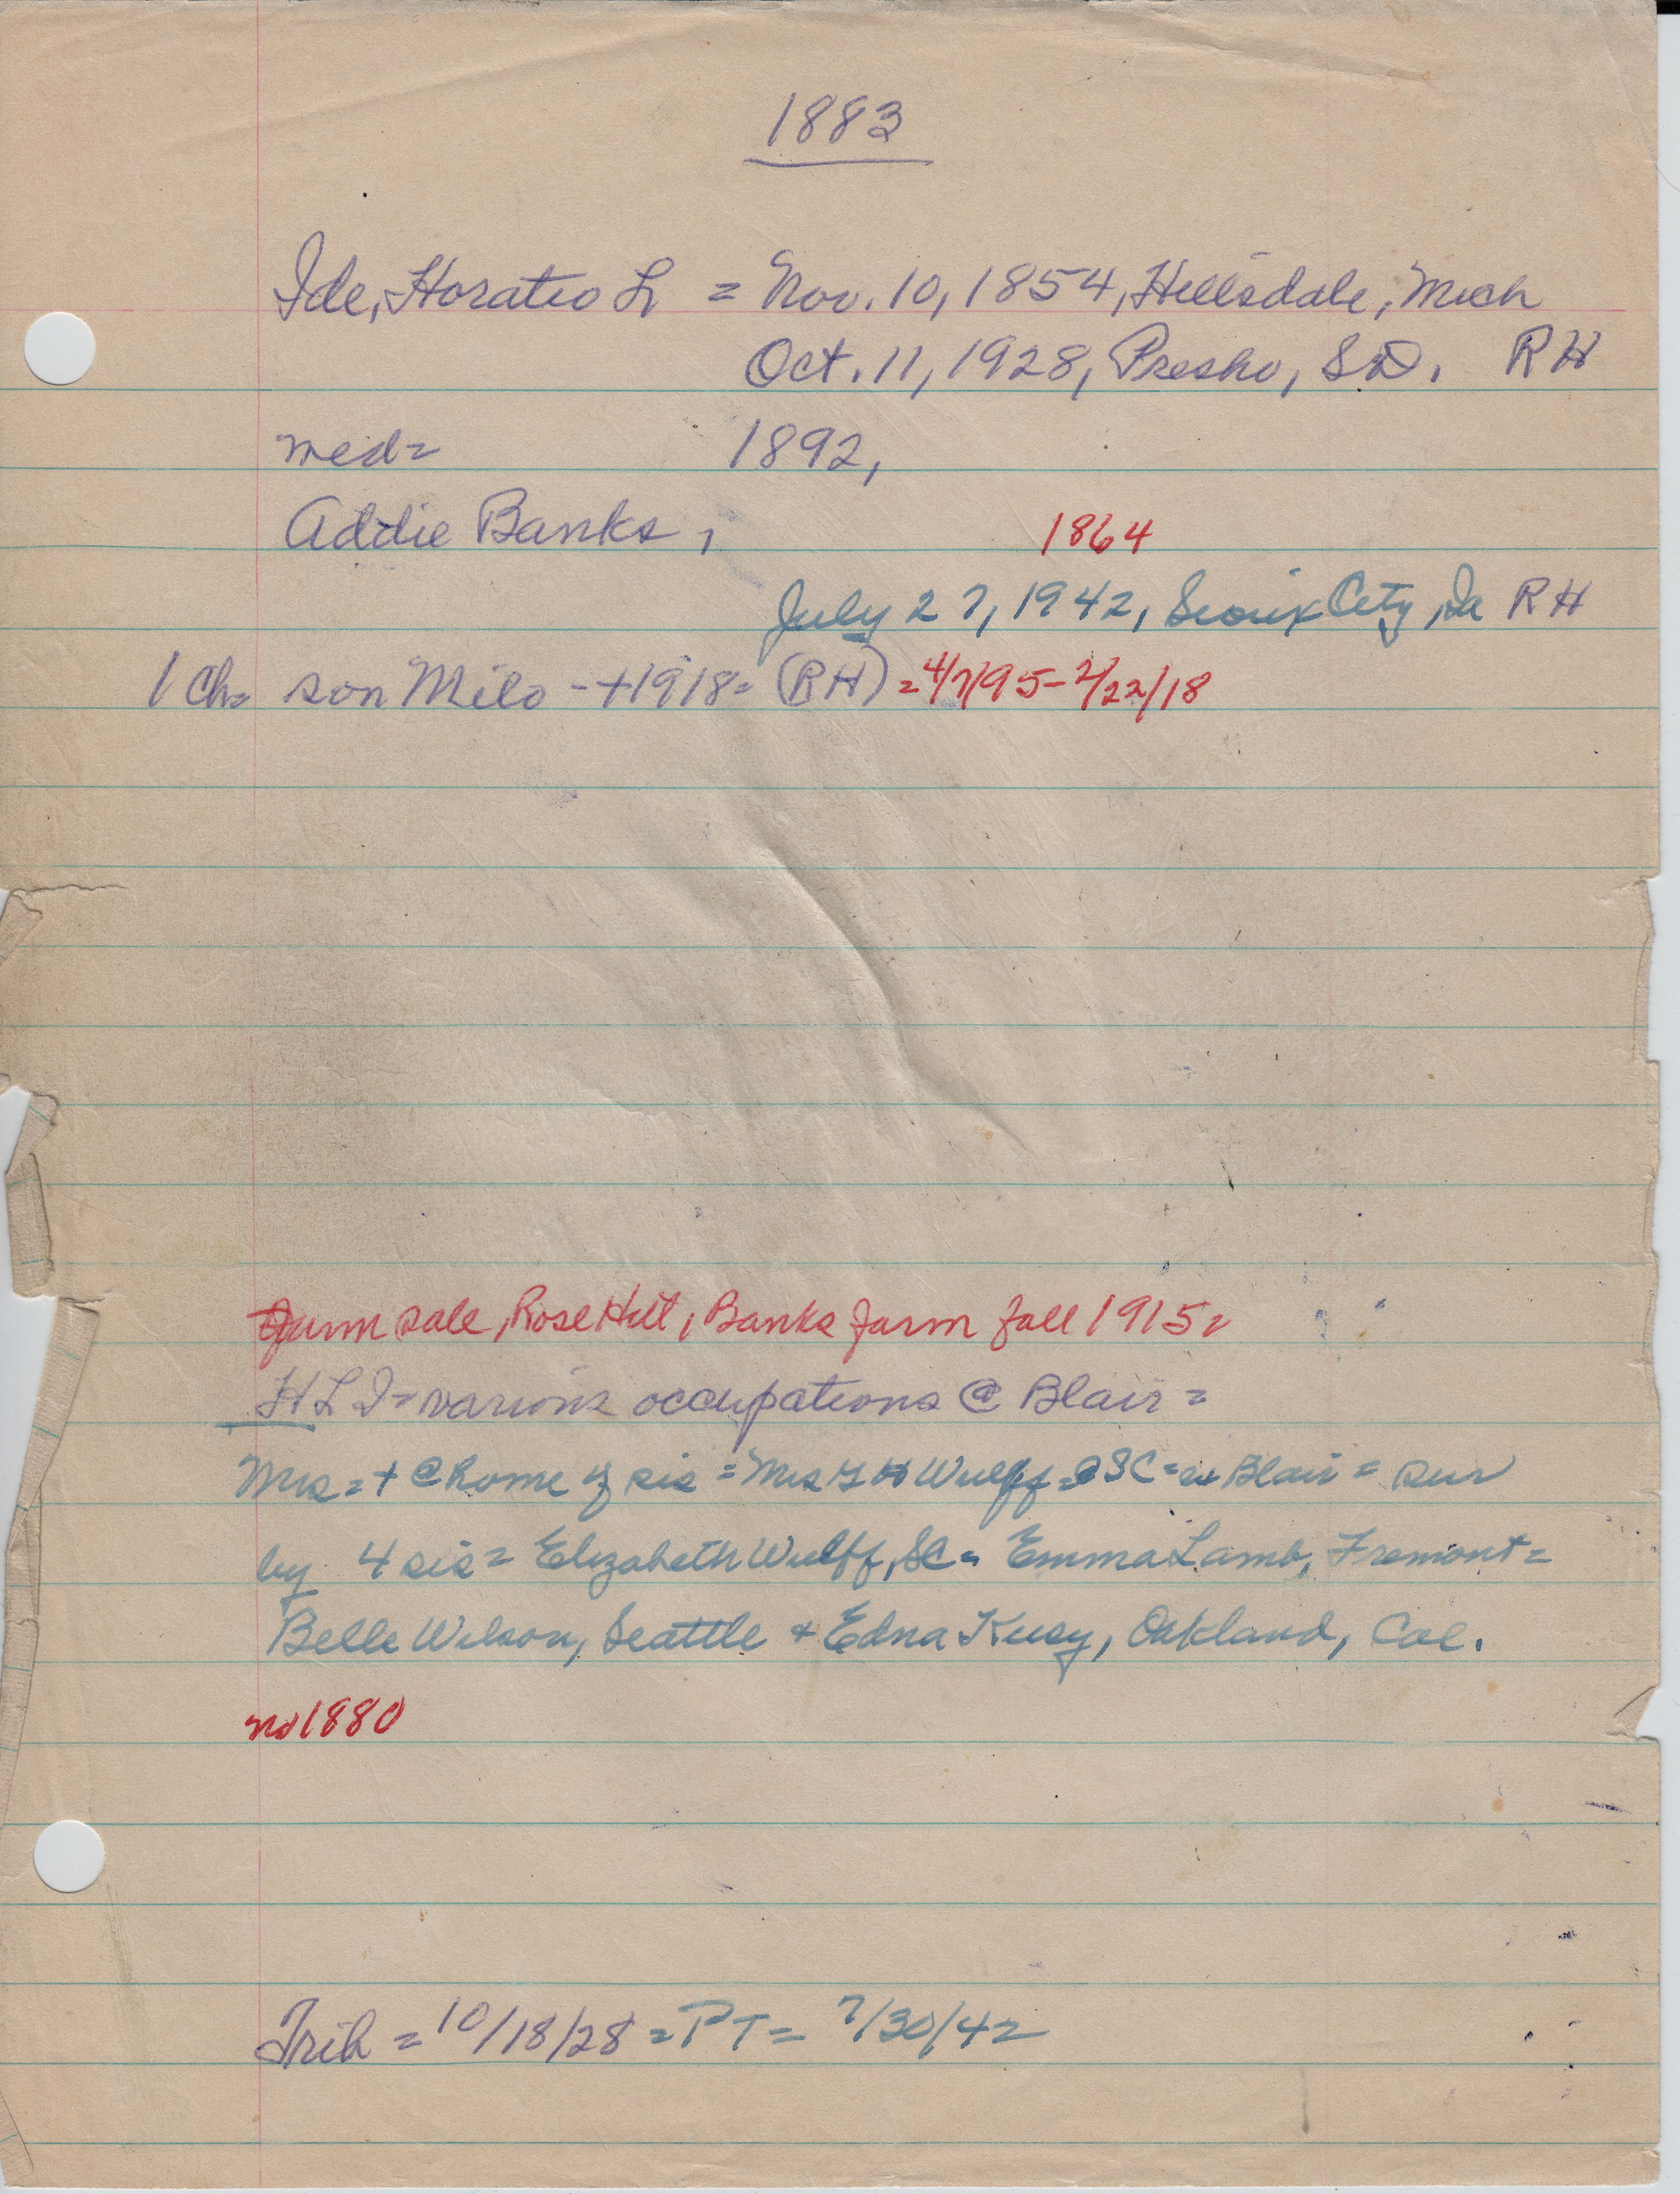 1883
Ide, Horatio L = Nov. 10, 1854, Hillsdale, Mich
Oct. 11, 1928, Presho, SD. RH
med= 1892,
Addie Banks, 1864
July 27, 1942, Sioux City, Ia RH
1 Ch= son Milo - +1918= (RH) = 4/7/95 - 2/22/18
Farm sale, Rose Hill, Banks farm fall 1915=
HLI= various occupations @ Blair =
Mrs = + @ home of sis = Mrs H Wulff = SC = ex Blair = sur
by 4 sis = Elizabeth Wulff, SC = Emma Lamb, Fremont =
Belle Wilson, Seattle + Edna Kusy, Oakland, Cal.
no 1880
Trib = 10/18/28 = PT = 7/30/42